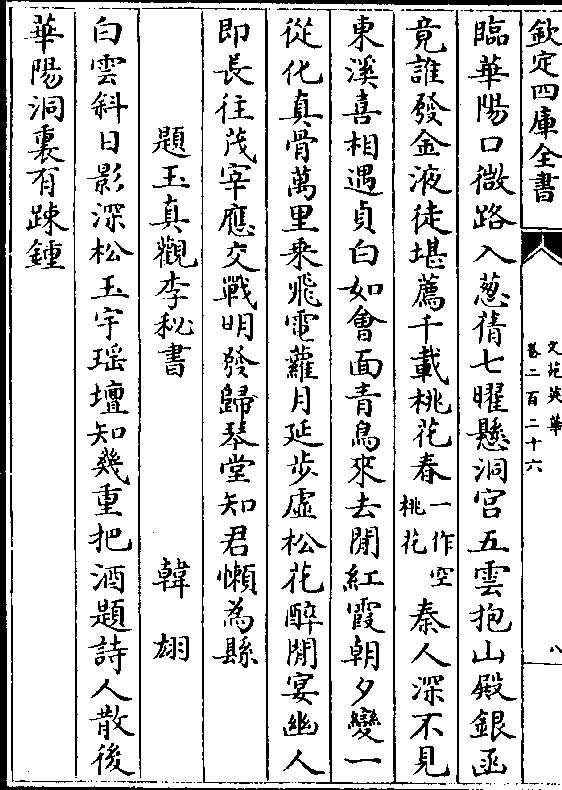 欽定四庫全書
文苑英華
卷二百二十六
八
臨華陽口微路入葱蒨七曜懸洞宫五雲抱山殿銀函
竟誰發金液徒堪薦千載桃花春一作空桃花秦人深不見
東溪喜相遇貞白如會面青鳥來去閒紅霞朝夕變一
從化真骨萬里乘飛電蘿月延步虚松花醉閒宴幽人
即長往茂宰應交戰明發歸琴堂知君懶為縣
題玉真觀李秘書
韓翃
白雲斜日影深松玉宇瑶壇知幾重把酒題詩人散後
華陽洞裏有疎鍾